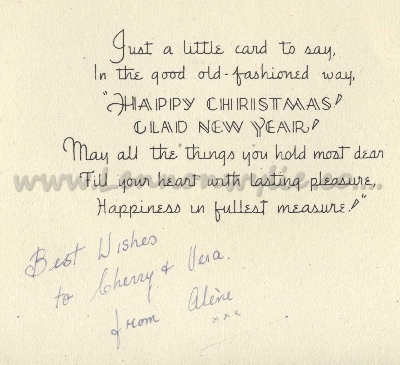 Just a little card to say,
In the good old-fashioned way,
"HAPPY CHRISTMAS!
GLAD NEW YEAR!
May all the things you hold most dear
Fill your heart with lasting pleasure,
Happiness in fullest measure!"
Best Wishes
to Cherry & Vera.
from Alène
xxx